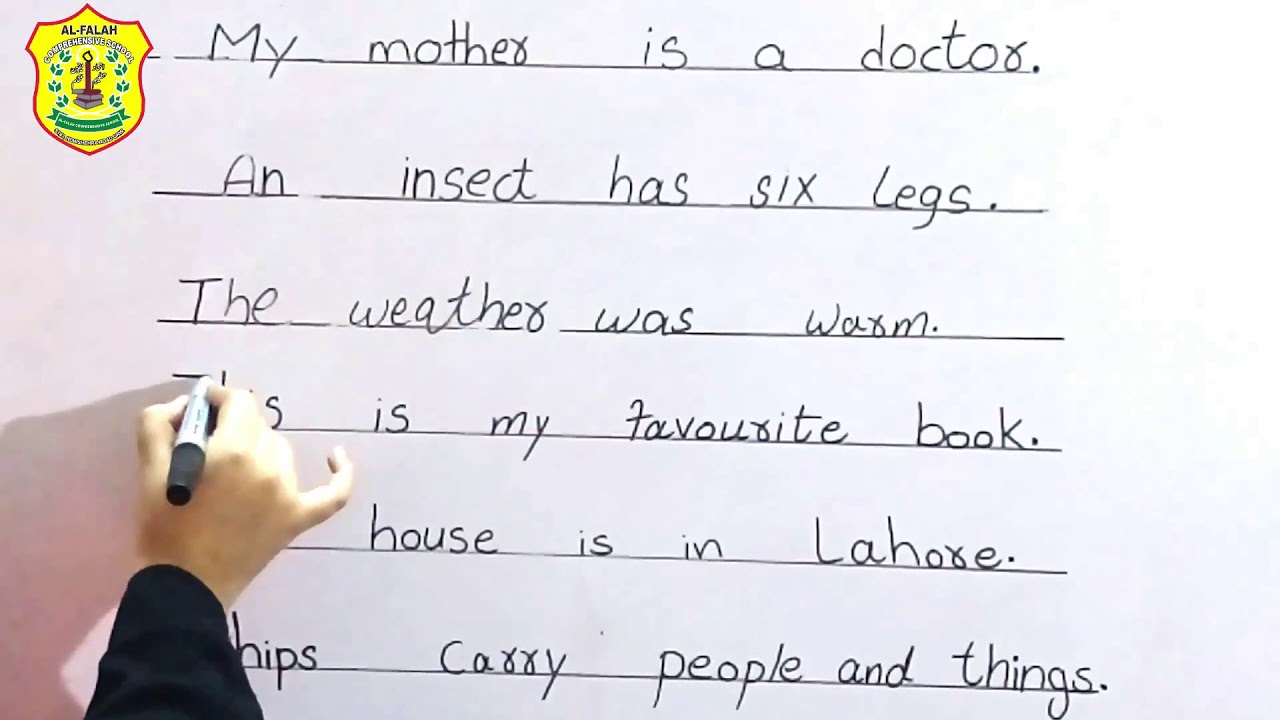 AL-FALAH
COMPREHENSIVE SCHOOL
AL-FALAH COMPREHENSIVE SCHOOL
My mother is a doctor.
An insect has six legs.
The weather was warm.
is my favourite book.
house is in Lahore.
hips carry people and things.